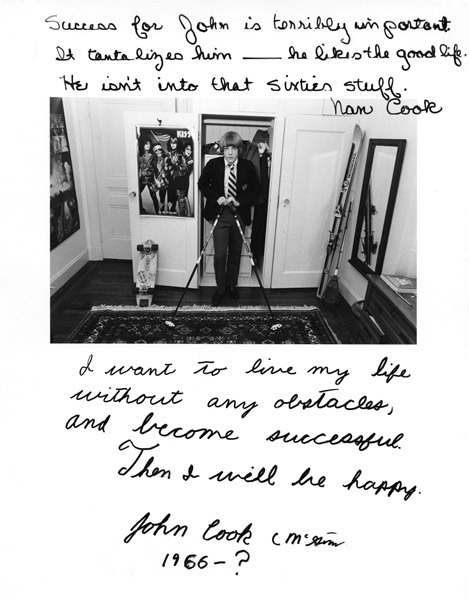 Success for John is terribly important.
It tantalizes him — he likes the good life.
He isn't into that Sixties stuff.
Nan Cook
KISS
I want to live my life
without any obstacles,
and become successful.
Then I will be happy.
John Cook
1966-?